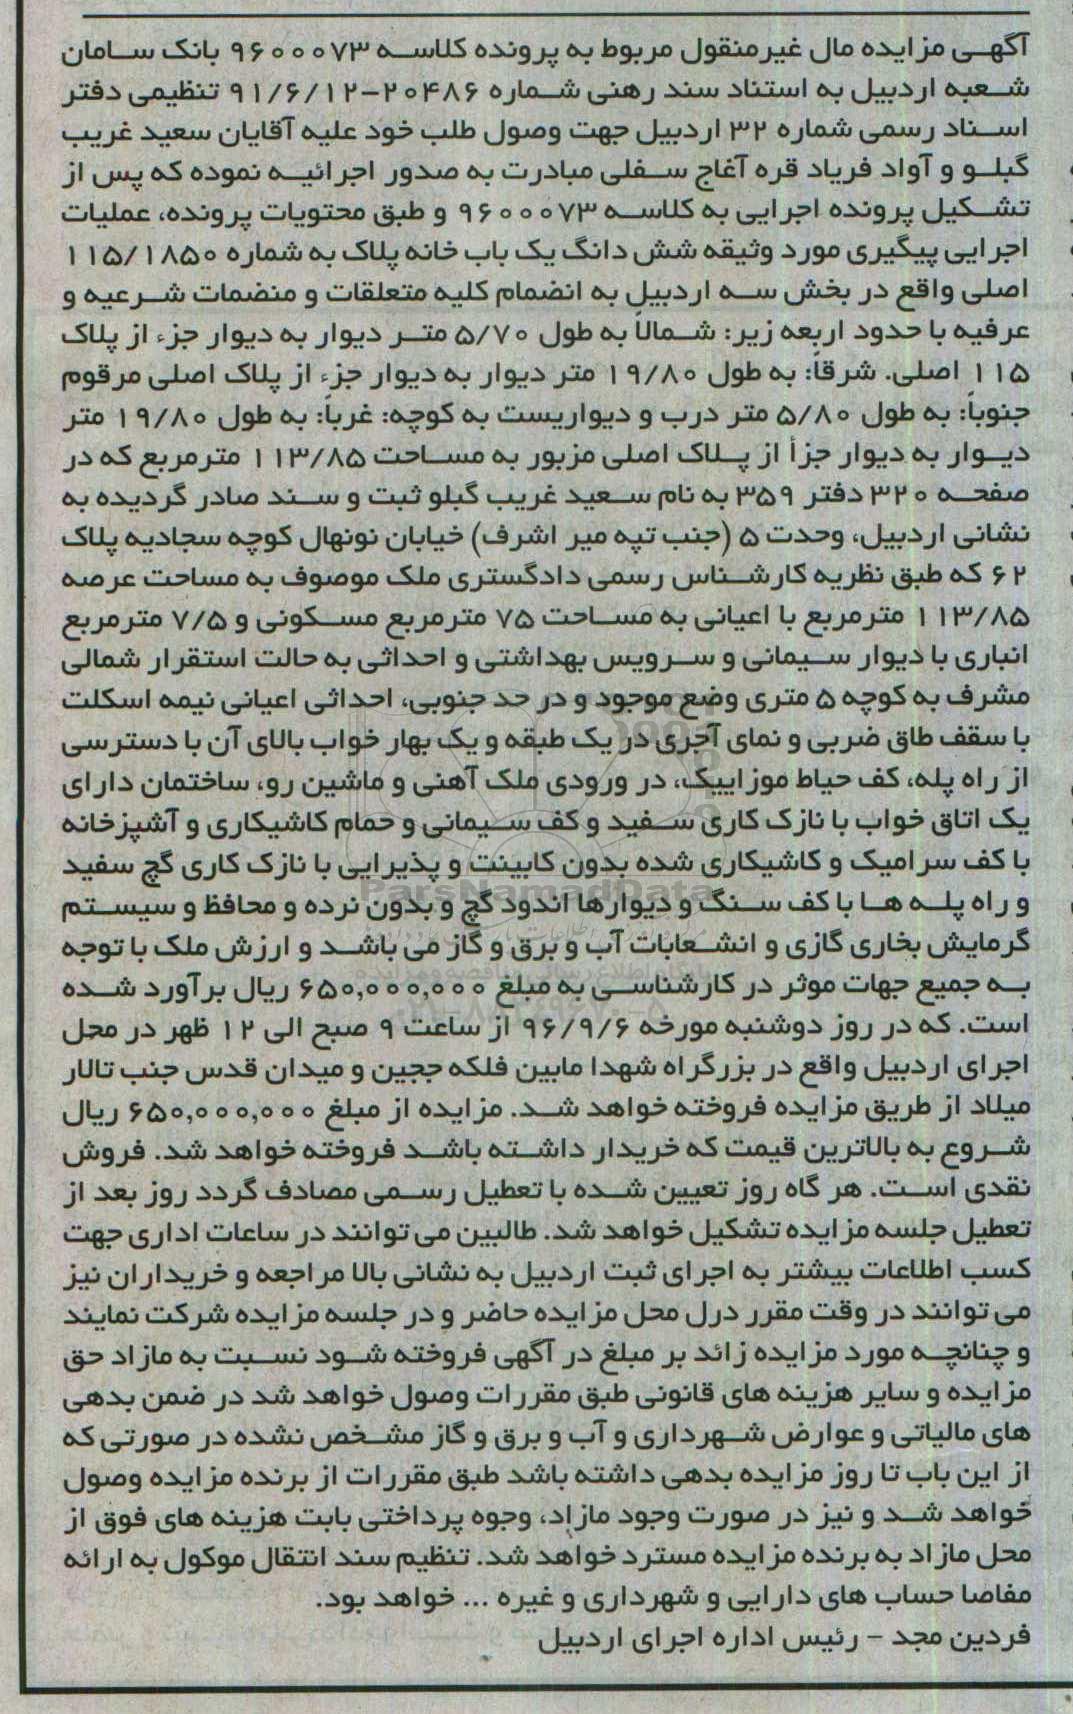 آگهی مزایده مال غیرمنقول مربوط به پرونده کلاسه ۹۶۰۰۰۷۳ بانک سامان
شعبه اردبیل به استناد سند رهنی شماره ۲۰۴۸۶-۹۱/۶/۱۲ تنظیمی دفتر
اسناد رسمی شماره ۳۲ اردبیل جهت وصول طلب خود علیه آقایان سعید غریب
گبلو و آواد فریاد قره آغاج سفلی مبادرت به صدور اجرائیه نموده که پس از
تشکیل پرونده اجرایی به کلاسه ۹۶۰۰۰۷۳ و طبق محتویات پرونده، عملیات
اجرایی پیگیری مورد وثیقه شش دانگ یک باب خانه پلاک به شماره ۱۱۵/۱۸۵۰
اصلی واقع در بخش سه اردبیل به انضمام کلیه متعلقات و منضمات شرعیه و
عرفیه با حدود اربعه زیر: شمالاً به طول ۵/۷۰ متر دیوار به دیوار جزء از پلاک
۱۱۵ اصلی. شرقاً: به طول ۱۹/۸۰ متر دیوار به دیوار جزء از پلاک اصلی مرقوم
جنوباً: به طول ۵/۸۰ متر درب و دیواریست به کوچه: غرباً: به طول ۱۹/۸۰ متر
دیوار به دیوار جزأ از پلاک اصلی مزبور به مساحت ۱۱۳/۸۵ مترمربع که در
صفحه ۳۲۰ دفتر ۳۵۹ به نام سعید غریب گبلو ثبت و سند صادر گردیده به
نشانی اردبیل، وحدت ۵ (جنب تپه میر اشرف) خیابان نونهال کوچه سجادیه پلاک
۶۲ که طبق نظریه کارشناس رسمی دادگستری ملک موصوف به مساحت عرصه
۱۱۳/۸۵ مترمربع با اعیانی به مساحت ۷۵ مترمربع مسکونی و ۷/۵ مترمربع
انباری با دیوار سیمانی و سرویس بهداشتی و احداثی به حالت استقرار شمالی
مشرف به کوچه ۵ متری وضع موجود و در حد جنوبی، احداثی اعیانی نیمه اسکلت
با سقف طاق ضربی و نمای آجری در یک طبقه و یک بهار خواب بالای آن با دسترسی
از راه پله، کف حیاط موزاییک، در ورودی ملک آهنی و ماشین رو، ساختمان دارای
یک اتاق خواب با نازک کاری سفید و کف سیمانی و حمام کاشیکاری و آشپزخانه
با کف سرامیک و کاشیکاری شده بدون کابینت و پذیرایی با نازک کاری گچ سفید
و راه پله ها با کف سنگ و دیوارها اندود گچ و بدون نرده و محافظ و سیستم
گرمایش بخاری گازی و انشعابات آب و برق و گاز می باشد و ارزش ملک با توجه
به جمیع جهات موثر در کارشناسی به مبلغ ۶۵۰,۰۰۰,۰۰۰ ریال برآورد شده
است. که در روز دوشنبه مورخه ۹۶/۹/۶ از ساعت ۹ صبح الی ۱۲ ظهر در محل
اجرای اردبیل واقع در بزرگراه شهدا مابین فلکه ججین و میدان قدس جنب تالار
میلاد از طریق مزایده فروخته خواهد شد. مزایده از مبلغ ۶۵۰,۰۰۰,۰۰۰ ریال
شروع به بالاترین قیمت که خریدار داشته باشد فروخته خواهد شد. فروش
نقدی است. هر گاه روز تعیین شده با تعطیل رسمی مصادف گردد روز بعد از
تعطیل جلسه مزایده تشکیل خواهد شد. طالبین می توانند در ساعات اداری جهت
کسب اطلاعات بیشتر به اجرای ثبت اردبیل به نشانی بالا مراجعه و خریداران نیز
می توانند در وقت مقرر درل محل مزایده حاضر و در جلسه مزایده شرکت نمایند
و چنانچه مورد مزایده زائد بر مبلغ در آگهی فروخته شود نسبت به مازاد حق
مزایده و سایر هزینه های قانونی طبق مقررات وصول خواهد شد در ضمن بدهی
های مالیاتی و عوارض شهرداری و آب و برق و گاز مشخص نشده در صورتی که
از این باب تا روز مزایده بدهی داشته باشد طبق مقررات از برنده مزایده وصول
خواهد شد و نیز در صورت وجود مازاد، وجوه پرداختی بابت هزینه های فوق از
محل مازاد به برنده مزایده مسترد خواهد شد. تنظیم سند انتقال موکول به ارائه
مفاصا حساب های دارایی و شهرداری و غیره ... خواهد بود.
فردین مجد - رئیس اداره اجرای اردبیل
ParsNamadData